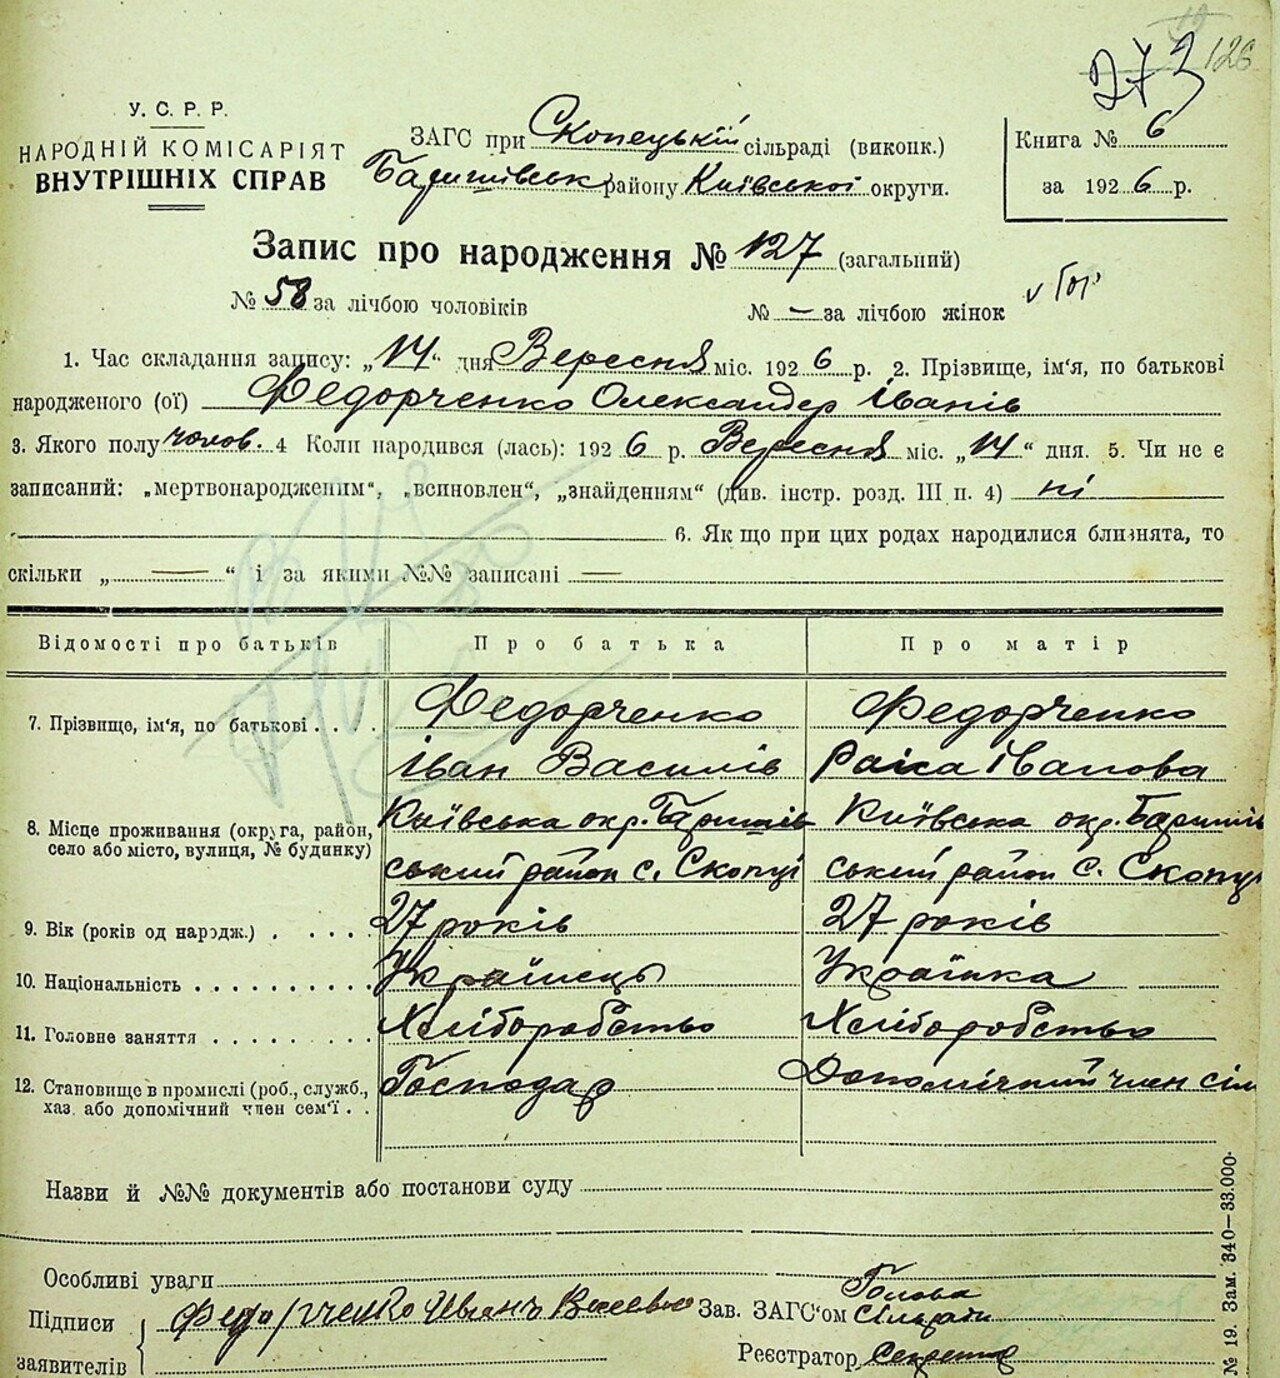 273 126
У. С. Р. Р.
НАРОДНІЙ КОМІСАРІЯТ
ВНУТРІШНІХ СПРАВ
ЗАГС при Скопецькій сільраді (виконк.)
Баришівськ району Київської округи.
Книга № 6
за 1926 р.
Запис про народження № 127 (загальний)
№ 58 за лічбою чоловіків № — за лічбою жінок
1. Час складання запису: „14“ дня Вересня міс. 1926 р. 2. Прізвище, ім'я, по батькові
народженого (ої) Федорченко Олександер Іванів
3. Якого полу чолов. 4 Коли народився (лась): 1926 р. Вересня міс. „14“ дня. 5. Чи не є
записаний: „мертвонародженим“, „всиновлен“, „знайденням“ (див. інстр. розд. III п. 4) ні
6. Як що при цих родах народилися близнята, то
скільки „ — “ і за якими №№ записані —
Відомості про батьків Про батька Про матір
7. Прізвище, ім'я, по батькові . . . . Федорченко Федорченко
Іван Василів Раїса Іванова
8. Місце проживання (округа, район, село або місто, вулиця, № будинку) Київська окр. Баришів Київська окр. Баришів
ський район с. Скопці ський район с. Скопці
9. Вік (років од народж.) . . . . . 27 років 27 років
10. Національність . . . . . . . . . . Українець Українка
11. Головне заняття . . . . . . . . . Хліборобство Хліборобство
12. Становище в промислі (роб., служб., хаз. або допомічний член сем'ї . . Господар Допомічний член сім
Назви й №№ документів або постанови суду
Особливі уваги
Підписи заявителів Федорченко Иванъ Зав. ЗАГС'ом Голова Сільради
Реєстратор Секретар
№ 19. Зам. 340—33.000